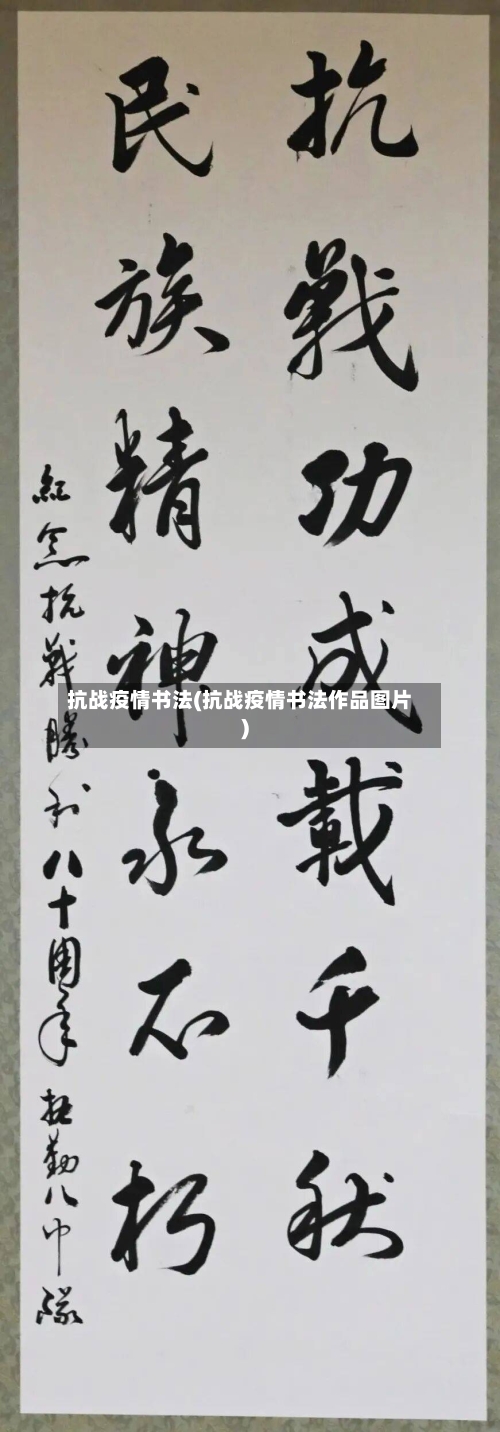 抗戰功成載千秋
民族精神永不朽
紀念抗戰勝利八十周年 执勤八中隊
抗战疫情书法(抗战疫情书法作品图片
)